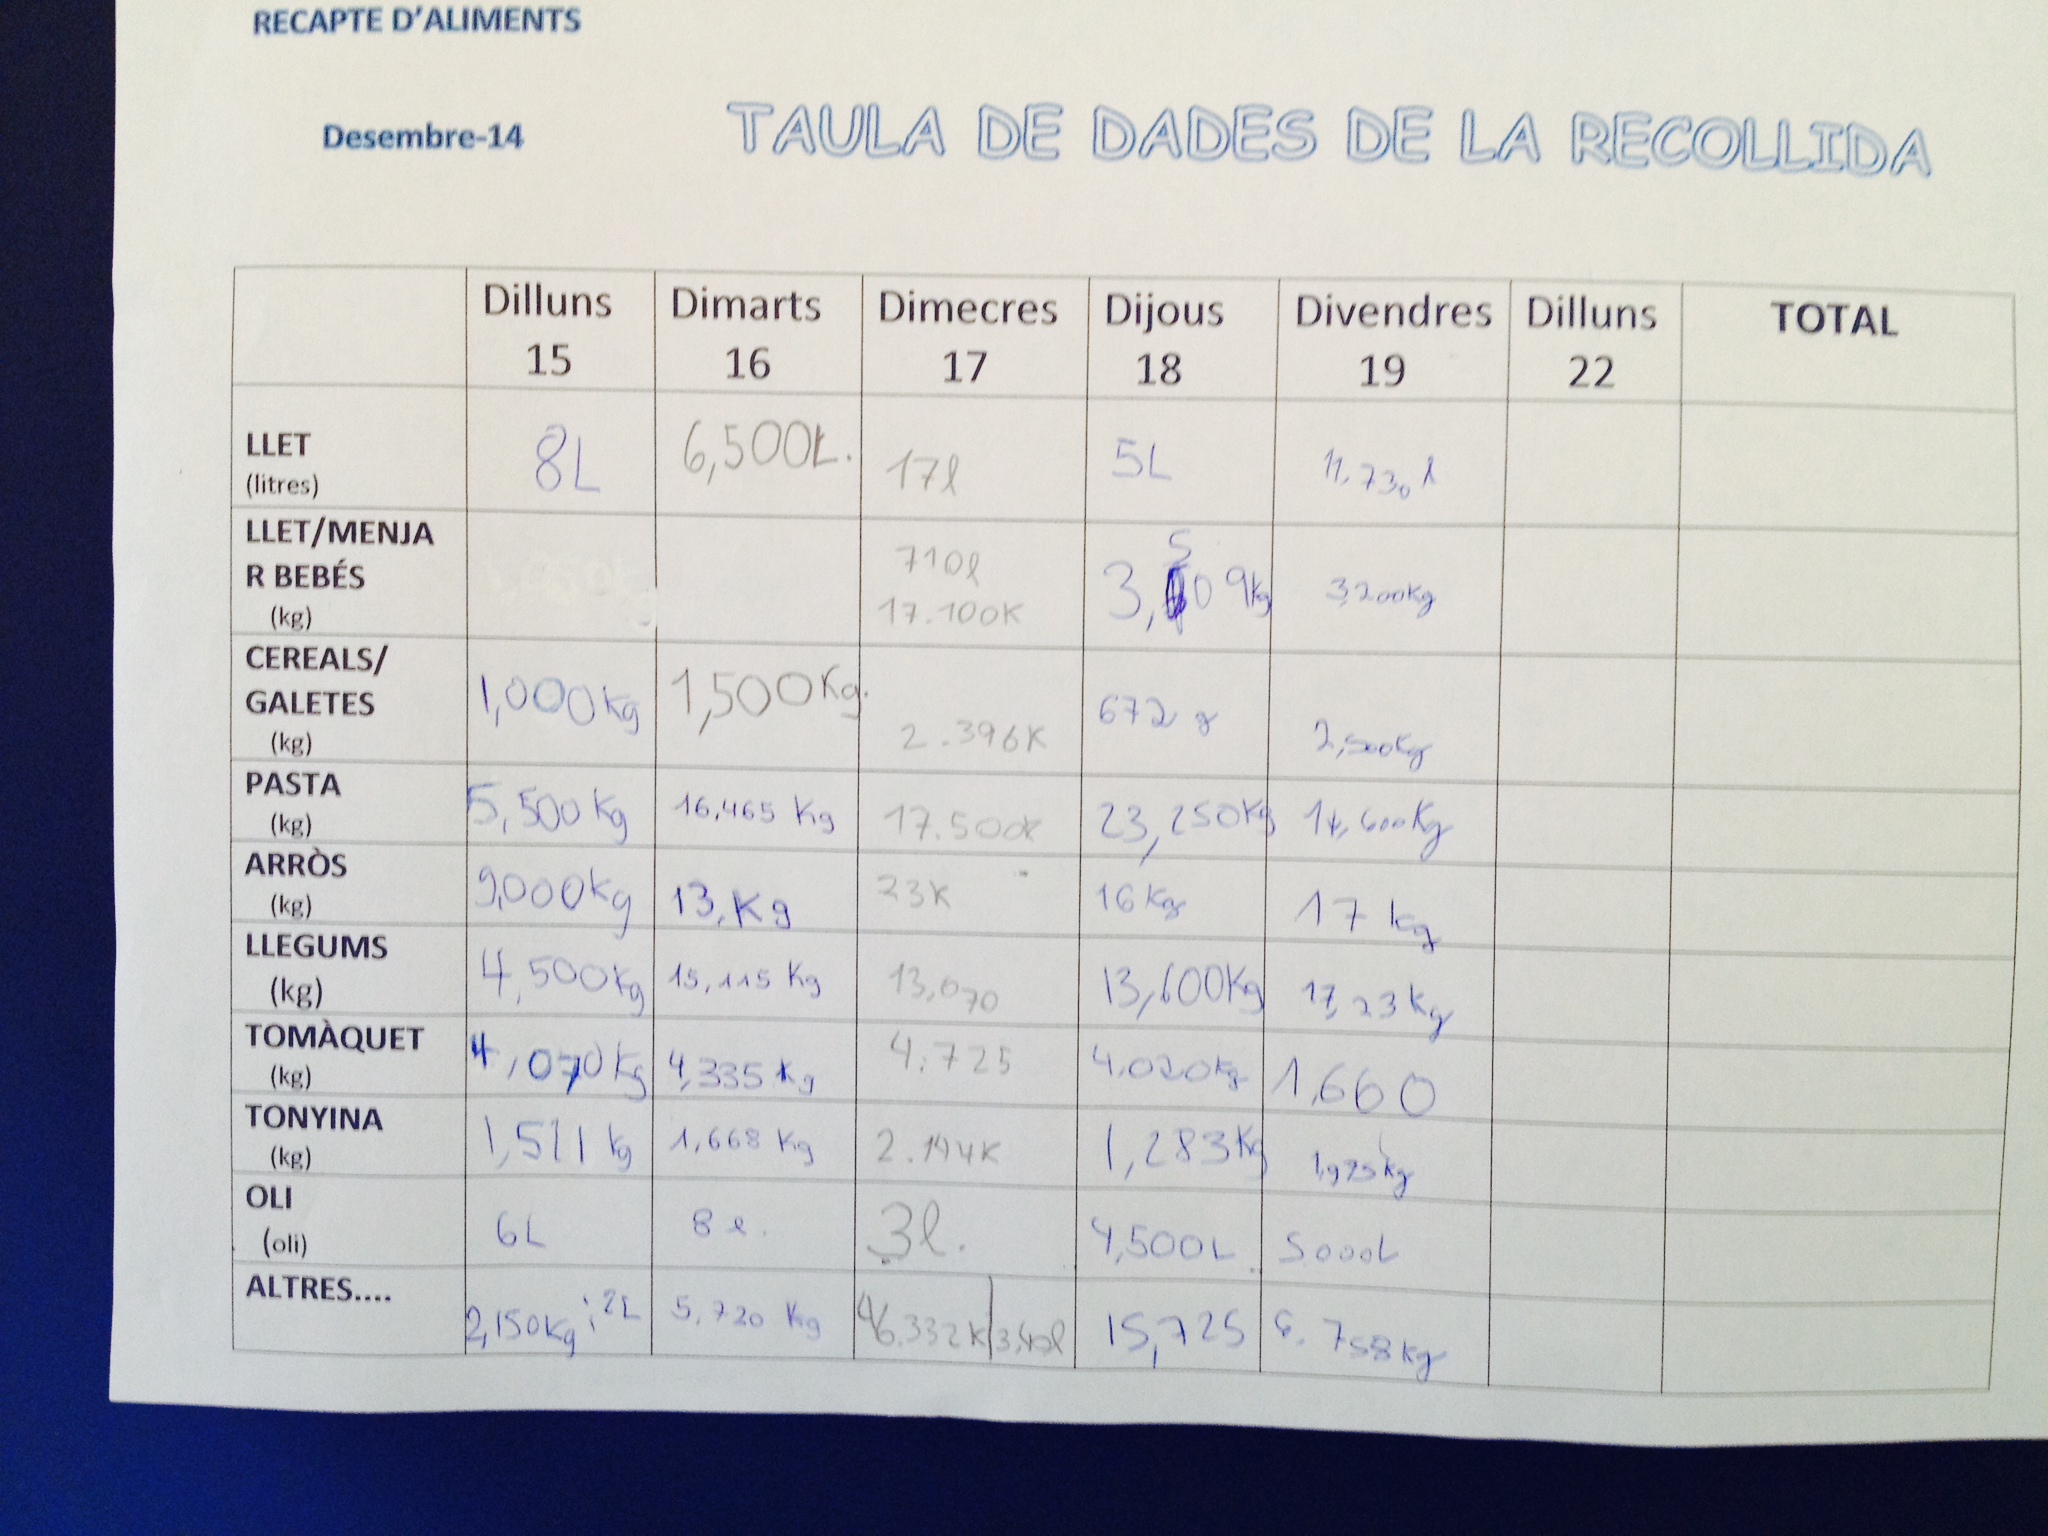 RECAPTE D'ALIMENTS
Desembre-14
TAULA DE DADES DE LA RECOLLIDA
Dilluns Dimarts Dimecres Dijous Divendres Dilluns TOTAL
15 16 17 18 19 22
LLET
(litres)
8L 6,500L. 17l 5L 11,730 l
LLET/MENJA
R BEBÉS
(kg)
710l
17.100K
5
3, 09kg 3,200Kg
CEREALS/
GALETES
(kg)
1,000kg 1,500Kg. 2.396K 672 g 2,500Kg
PASTA
(kg)
5,500Kg 16,465 Kg 17.500K 23,250Kg 14,600Kg
ARRÒS
(kg)
9,000Kg 13,Kg 23K 16Kg 17 kg
LLEGUMS
(kg)
4,500Kg 15,115 Kg 13,070 13,600Kg 17,23kg
TOMÀQUET
(kg)
4,070Kg 4,335Kg 4.725 4.020Kg 1,660
TONYINA
(kg)
1,511 kg 1,668 Kg 2.144K 1,283Kg 1,975kg
OLI
(oli)
6L 8 l. 3l. 4,500L 5000L
ALTRES....
2,150Kg i 2L 5,720 Kg 15,725 6.758kg